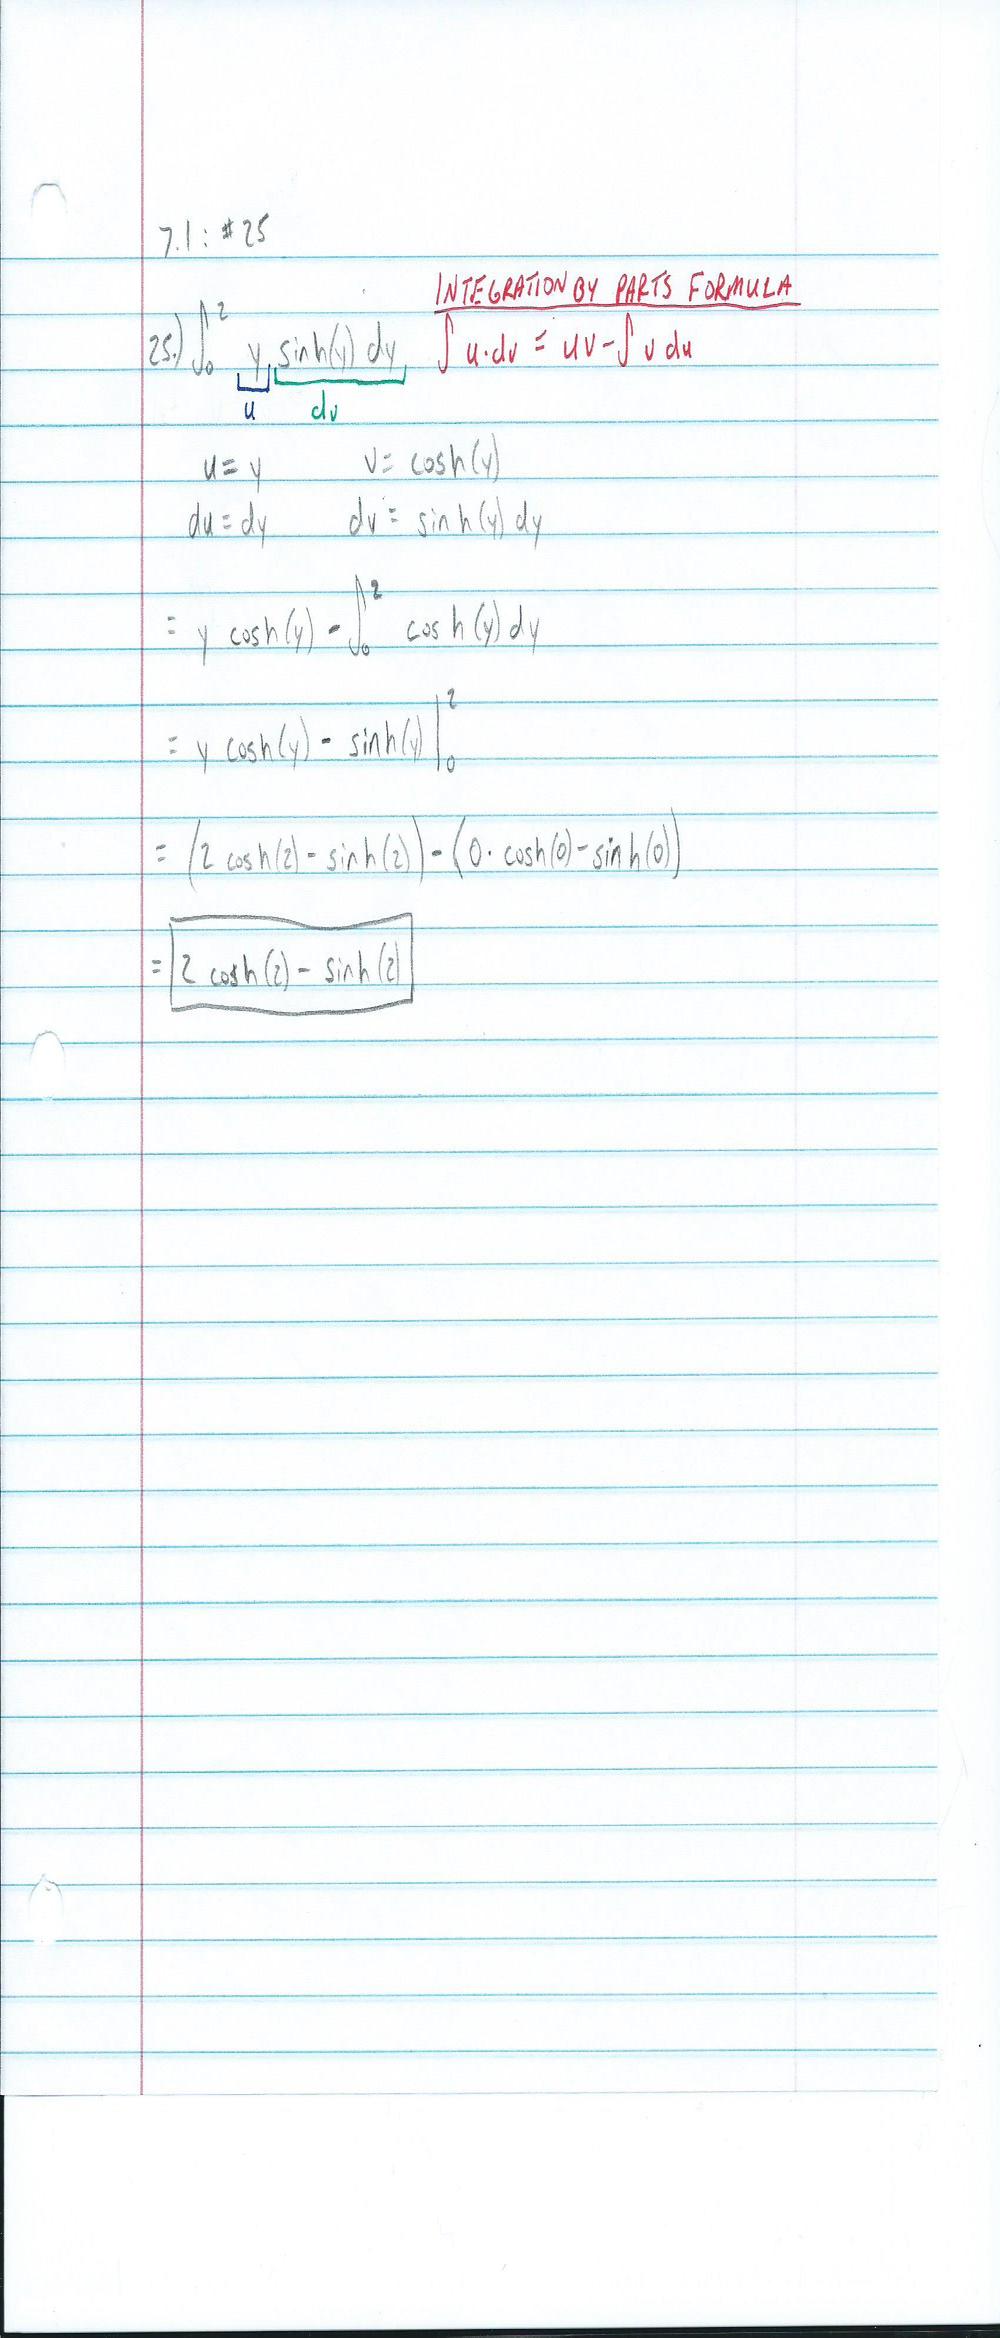 7.1: #25
INTEGRATION BY PARTS FORMULA
25.) ∫₀² y sinh(y) dy ∫ u·dv = uv - ∫ v du
u dv
u = y v = cosh(y)
du = dy dv = sinh(y) dy
= y cosh(y) - ∫₀² cosh(y) dy
= y cosh(y) - sinh(y) |₀²
= (2 cosh(2) - sinh(2)) - (0· cosh(0) - sinh(0))
= 2 cosh(2) - sinh(2)